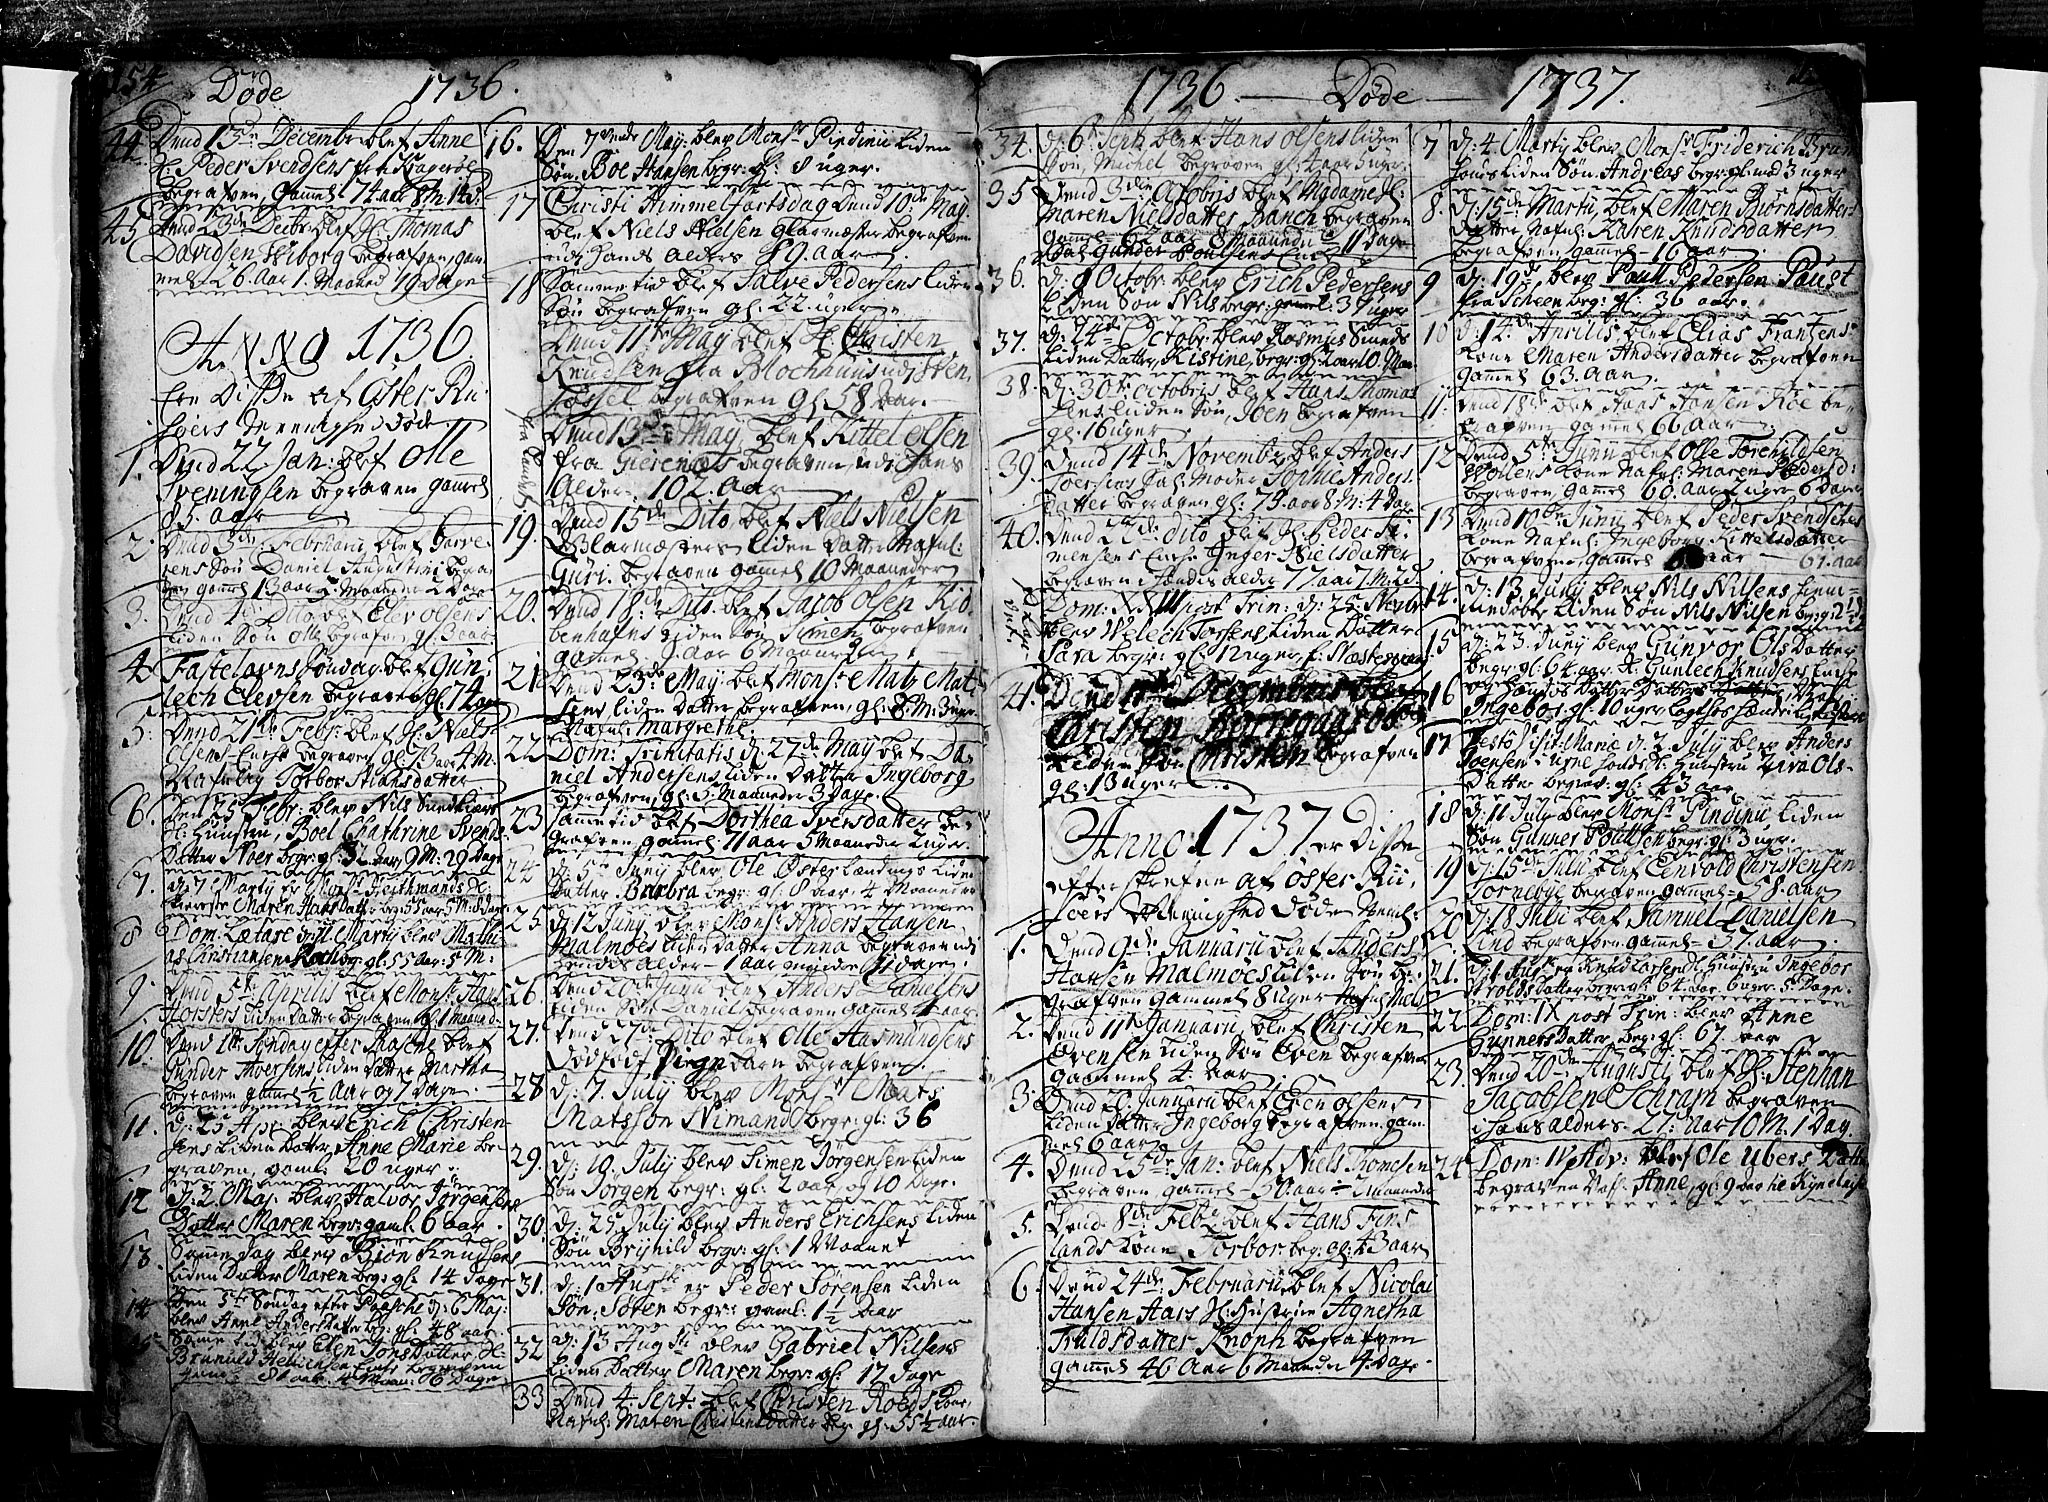 154
Døde 1736.
44 Dend 13de Decembr blef Anne
Sl: Peder Svendsens fra
begrafven, Gammel 74 aar 8 M: 14 d:
45 Dend 23de Decbr blef Sl: Thomas
Davidsen Wiborg begrafven, gam-
mel 26. Aar 1. Maaned 19 Dage
Anno 1736
ere Disse af Øster Rii-
søers Meenighed døde
1. Dend 22 Jan: blef Olle
Sveningsen begraven gammel
85. aar
2. Dend 3de Februarii blef
Søn Daniel Augustini begra-
ven gamel 13 aar Maaneder 2 Dage
3. Dend Dito blef Elev Olsens
liden Søn Olle begrafven gl: 3 aar
4 Fastelavns Søndag blef Gun-
lech Elevsen begraven gl: 74 aar
5. Dend 21de Febr: blef Sl: Niels
Olsens Enche begraven gl: aar 4 M.
Nafnlig Torbor
6. Den 25 Febr: blev Nils
Sl: Hustru, Boel Chathrine Svends
Datter Noer begr: gl: 32 Aar, 9 M: 29 Dage
7. d: 7 Marty er Monsr
Maren Hans Datter begr: 55 aar 5 M: 8 dage
8 Dom: Lætare d: 11 Marty blev Mathi-
as Christiansen Koch begr: gl: 55 aar: 5 M:
9. Dend 3de Aprilis blef Monsr Hans
Horsters liden datter begraven gl: 1 maaned
10. Dend 1ste Søndag efter Paasche blef
Gunder Iversens liden datter Martha
begraven gamel 1½ aar og 7 Dage
11. d: 25 Apr: blev Erich Christen-
sens liden Datter Anne Marie be-
graven, gaml: 20 uger.
12 d: 2. Maj: blev Halvor Jørgensens
Datter Maren begr: gaml: 6 aar.
13. Samme dag blev Biørn Knudsens
liden Datter Maren begr: gl: 14 Dage
14 Den 5te Søndag efter Paasche d: 6 Maj:
blev Anne Anders Datter begr: gl: 48 aar
15 Samme tid blev Elen Jons Datter Sl:
Brunuld Enche begraven
gaml: 81 aar 4 Maan: 6 Dage
16. Den 7vende May: blev Monsr Pindinii liden
Søn Boe Hansen begr: gl: 8 uger.
17 Christi Himmelfartsdag Dend 10de May.
blef Niels Nielsen Glarmæster begrafven
udj Hands Alders 89. Aar
18 Sammetid blef Salve Pedersens liden
Søn begrafven gl. 22. uger
Dend 11te May blef Sl. Christen
Knudsen fra Blochhuus udj
begrafven gl 58 Aar.
Dend 13de May blef Kittel Olsen
fra begraven, udj Hans
Alder 102. Aar
19. Dend 15de Dito blef Niels Nielsen
Glarmæsters liden datter Nafnl:
Guri. begraven gamel 10 Maaneder
20. Dend 18de Dito blef Jacob Olsen Kiø-
benhafns liden Søn Simen begrafven
gamel 1 aar 6 Maaneder
21 Dend 23de May: blef Monsr Matz Mat-
sens liden datter begrafven, gl: 8 M: 3 uger
Nafnl: Margrethe.
22 Dom: Trinitatis d: 27de May blef Da-
niel Andersens liden datter Ingeborg
begrafven, gl: 5 Maaneder 3 Dage.
23 Sammetid blef Dorthea Iversdatter be-
grafven gammel 71 aar 5 Maaneder 2 uger.
24 d: 5te Junij blev Ole Øster liden
Datter Barbra begr: gl: 8 aar. 4 Maaneder
25. d: 12 Junj blev Monsr: Anders Hansen
Malmøes liden datter Anna begraven udj
hendis alder 1 aar dage.
26. Dend 20de Junii blef Anders Danielsens
liden Søn Daniel begraven gammel 4 aar.
27. Dend 27de Dito blef Olle Aasmundsens
Dødfødt Pigebarn begrafven.
28 d: 7. July blev Monsr Mats
Matsson Nimand begr: gl: 36
29. d: 19. July blev Simen Jørgensen liden
Søn Jørgen begr: gl: 2 aar og 10 Dage.
30. d: 25 July blev Anders Erichsens liden
Søn Brynild begr: gl: 1 Maanet
31. d: 1 Augste er Peder Sørensen liden
Søn: Søren begr: gaml: 1½ Aar
32 d: 13 Augsti blev Gabriel Nilsens
liden Datter Maren begr: gl: 12 Dage
33 Dend 4. Sept: blef Christen Roeds Kone
Nafnl: Maren Christensdatter beg: gl: 55½ aar
1736 — Døde — 1737.
34. d: 6te Septb blef Hans Olsens liden
Søn, Michel begraven gl: 4 aar 3 uger.
35 Dend 3die Octobris blef Madame Sl:
Maren Nielsdatter Banch begraven
gammel 62 aar 8 Maaneder 11 Dage
Sal: Gunder Poulsens Enche
36. d: 9 Octobr: blev Erich Pedersens
liden Søn Nils begr: gamel: 37 uger
37. d: 24de Octobr: blev Rasmus Smeds
liden Datter, Kistine, begr: gl: 2 aar 10 Maa-
38. d: 30te Octobris blef Hans Thomas-
sens liden Søn, Joen begrafven
gl: 16 uger
39. Dend 14de Novembr blef Anders
Moder Sophie Anders-
datter begraven gl: 79 aar 8 M: 4 Dage
40. Dend 22de: dito blef Sl: Peder Si-
mensens Enche Inger Nielsdatter
begraven i Hendis alder 77 aar 7 M: 2 d:
Dom: XXVI post Trin: d: 25 Novbr
blev Welech Torsens liden Datter
Sara begr: gl: 12 uger, f: Næsterveien
41. Dend Decembris blef
Christen
liden Søn Christen begrafven
gl: 13 uger.
Anno 1737 er Disse
efterskrefne af Øster Rii-
søers Menighed døde Neml:
1. Dend 9de Januarii blef Anders
Hansen Malmøes liden Søn be-
grafven gammel 8 uger Nafnl. Niels
2. Dend 11te Januarii, blef Christen
Evensen liden Søn Even begrafven
gammel 4. aar
3 Dend Januarii blef Even Olsens
liden datter Ingeborg begrafven gam-
mel 6 aar
4. Dend 25de Jan: blef Niels Thomesen
begraven, gammel 50. aar 2 maaneder
5. Dend 8de: Feb: blef Hans Fins-
lands kone Torbor begr: gl: 43 aar
6. Dend 24de: Februarii blef Nicolai
Hansen Aars Sl: Hustrue Agnetha
Truldsdatter Knoph begrafven
gammel 46 Aar 6 Maaneder 4 Dage.
7 d: 4 Marty blev Monsr Friderich Brun
liden Søn Andreas begr: gl: 3 uger
8. d: 15de Martii, blef Maren Biørnsdatters
datter Nafnl: Karen Knudsdatter
begrafven, gammel 16 aar
9 d: 19de blev Paull Pedersen Paust
fra Scheen begr: gl: 36 aar.
10 d: 14de Aprilis blef Elias Frantzens
kone Maren Andersdatter begrafven
gammel 63. aar
11. Dend 18de blef Hans Hansen Roe be-
grafven gammel 66 aar
12 Dend 5te Junii blef Olle Torchildsen
Kone Nafnl: Maren Pedersd:
begraven, gammel 60. aar 2 uger 6 Dage
13 Dend 10de Junii blef Peder Svendsens
Kone Nafnl: Ingeborg Kittelsdatter
begrafven, gammel aar — 67. aar
14. d: 13 Junij blev Nils Nilsens
liden Søn Nils Nilsen begr: gl:
15 d: 23. Junij blev Gunvor Ols Datter
begr: gl: 64 aar. Sl. Gunlech Knudsens Enche
16 og hendes Datter Datter
Ingebor. gl: 10 uger
17 Festo Visit: Mariæ d: 2 July blev Anders
Joensen Hustru Zara Ols-
Datter begrav: gl: 43 aar
18 d: 11 July blev Monsr Pindinii liden
Søn Gunner Poulsen begr: gl: 3 ugr:
19 d: 15de Julii blef Eenvold Christensen
Tornebye begraven gammel 58. aar
20 d: 18 Julii blef Samuel Danielsen
Lind begrafven gammel 37. aar
21. d: 1 Aug: er Knud Larsens Hustru Ingebor
Arolds Datter begr: gl: 64 aar. 6 uger. 5 Dage.
22 Dom: IX post Trin: blev Anne
Gunners Datter begr: gl: 67. aar
23. Dend 20de Augusti blef Sl: Stephan
Jacobsen Schram begraven
i Hans alders 27: aar 10 M. 1 Dag.
24. Dom: IV Adv: blef Ole Ubers Datter
begraven Nafl: Anne, gl: 9 aar